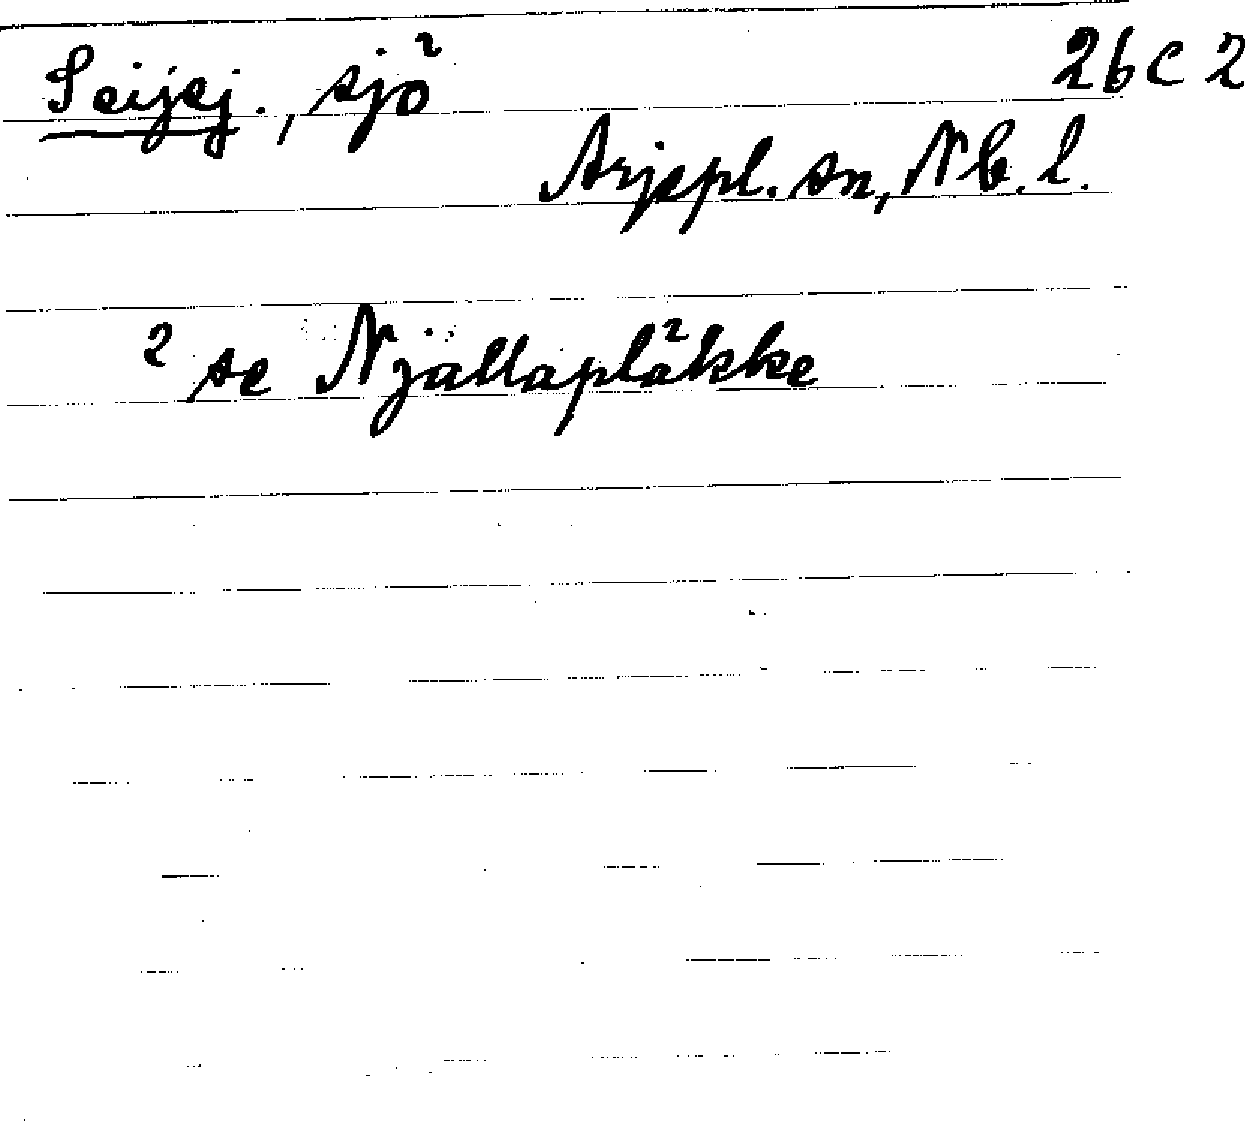 Seijej., sjö 26 C 2
Arjepl. sn, Nb. l.
2 se Njállaplåkke